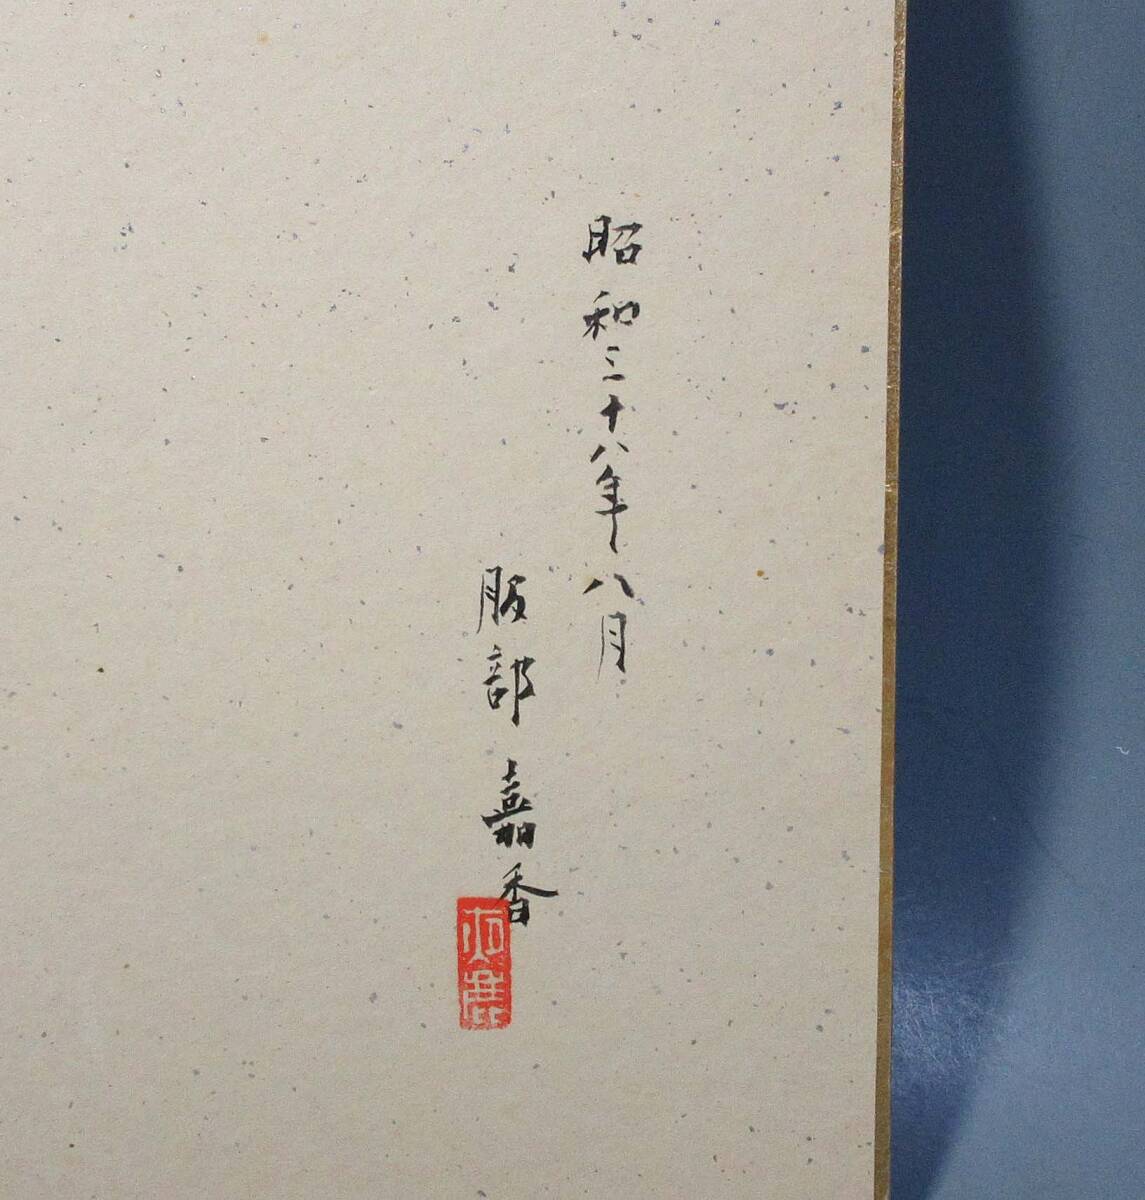 昭和三十八年八月
服部嘉香